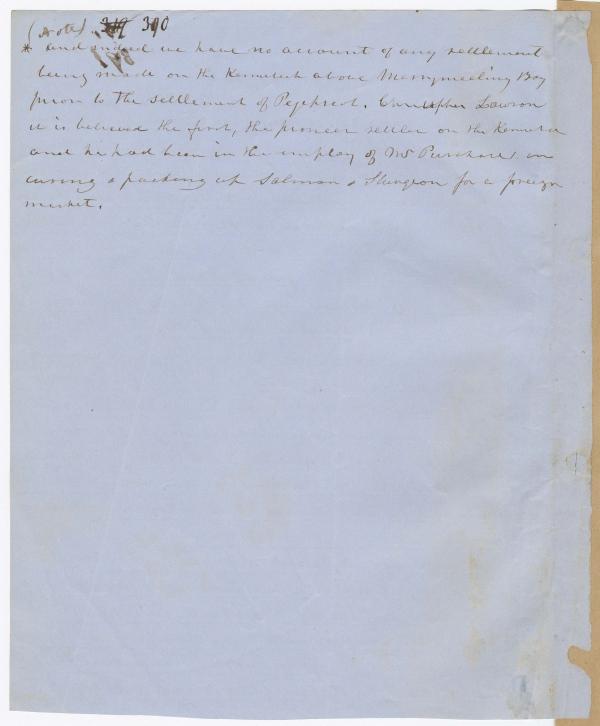 (Note) 310
* and indeed we have no account of any settlement
being made on the Kennebeck above Merrymeeting Bay
prior to the settlement of Pejepscot. Christopher Lawson
it is believed the first, the pioneer settler on the Kennebec
and he had been in the employ of Mr Purchase in
curing & packing up Salmon & Sturgeon for a foreign
market.